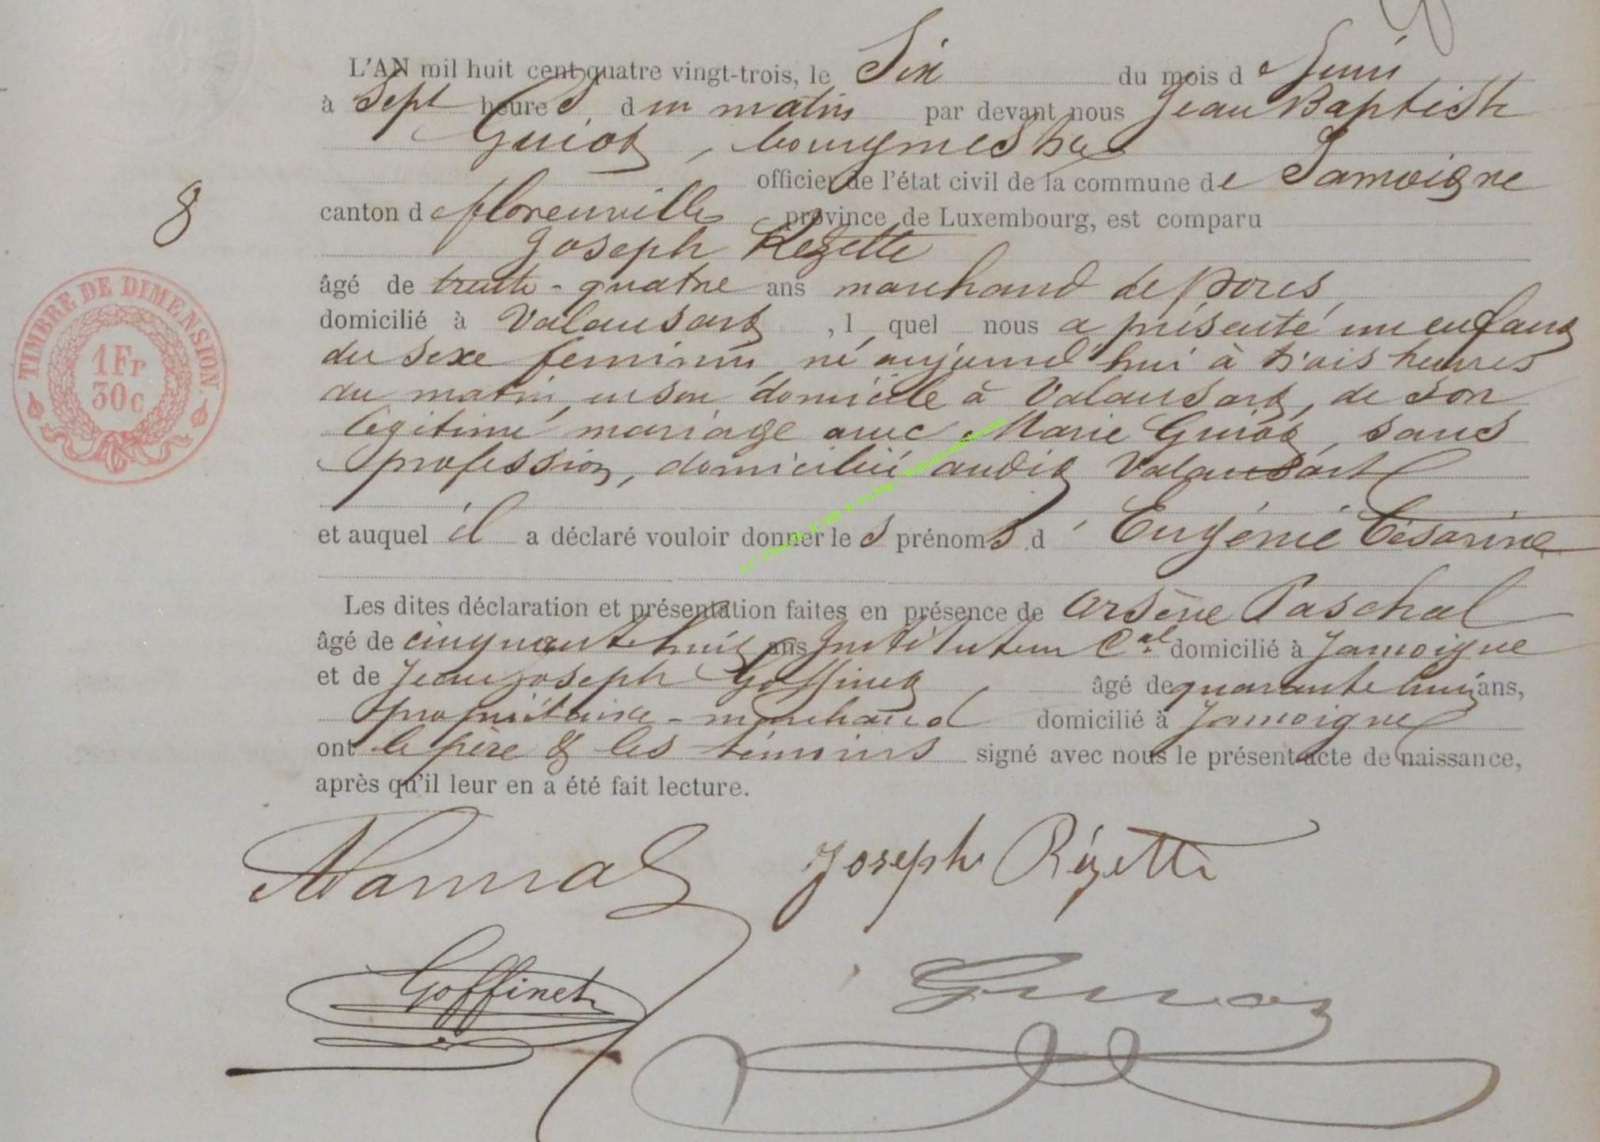 L'AN mil huit cent quatre vingt-trois, le Six du mois d e Juin
à Sept heure s d u matin par devant nous Jean Baptiste
Guiot, bourgmestre
officier de l'état civil de la commune de Jamoigne
canton d e florenville province de Luxembourg, est comparu
8
Joseph Rezette
âgé de trente-quatre ans marchand de porcs,
domicilié à Valansart, l quel nous a présenté un enfant
du sexe feminin, né aujourd'hui à trois heures
du matin, en son domicile à Valansart, de son
légitime mariage avec Marie Guiot, sans
profession, domiciliée audit Valansart
et auquel il a déclaré vouloir donner le s prénom s d' Eugénie Césarine
Les dites déclaration et présentation faites en présence de Arsène Paschal
âgé de cinquante huit ans Instituteur Cal domicilié à Jamoigne
et de Jean Joseph Goffinet âgé de quarante huit ans,
propriétaire-marchand domicilié à Jamoigne
ont le père & les témoins signé avec nous le présent acte de naissance,
après qu'il leur en a été fait lecture.
TIMBRE DE DIMENSION
1 Fr
30 c
Joseph Rézette
Goffinet
Guiot